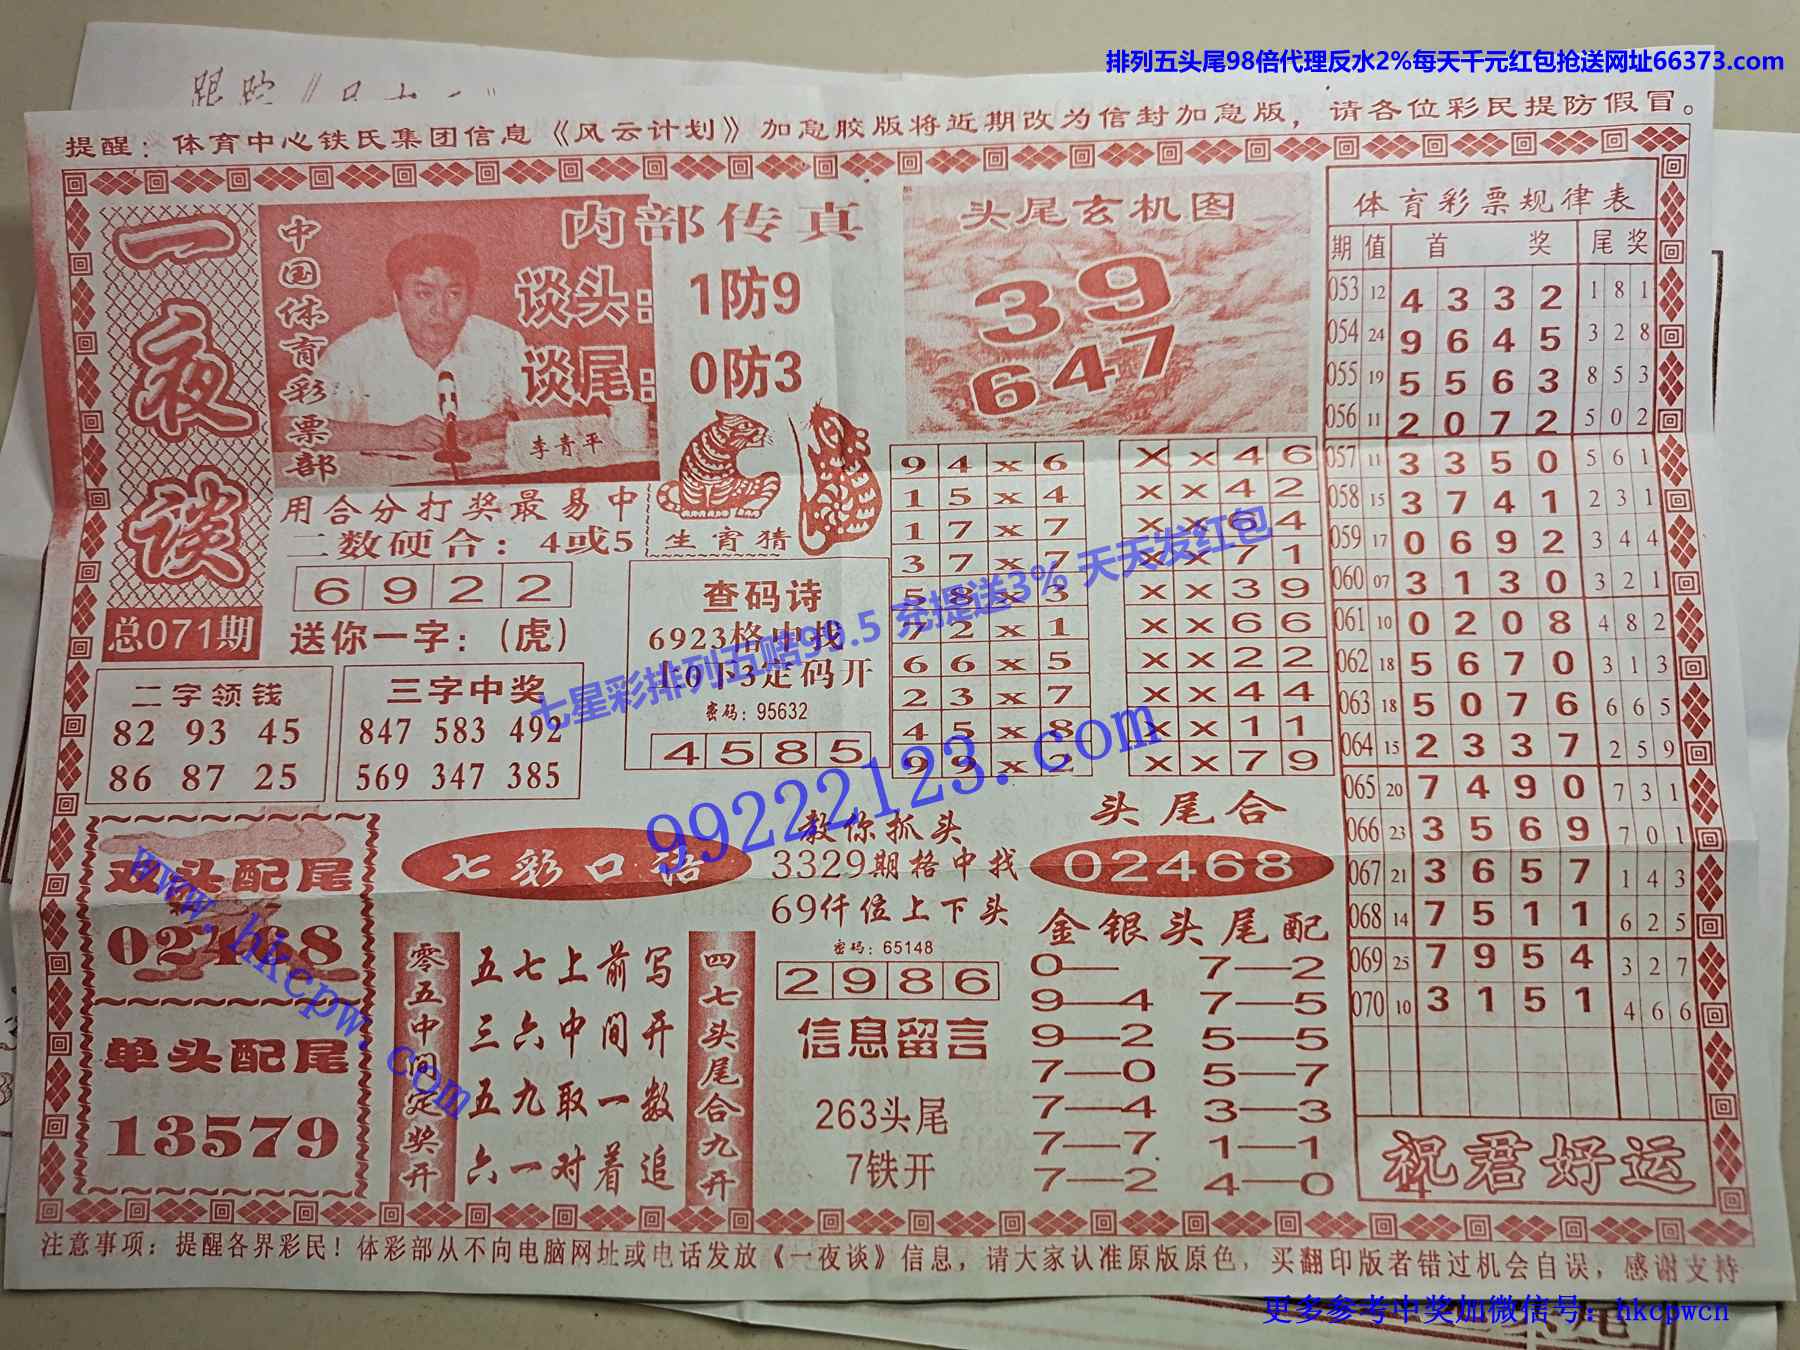 排列五头尾98倍代理反水2%每天千元红包抢送网址66373.com
提醒：体育中心铁氏集团信息《风云计划》加急胶版将近期改为信封加急版，请各位彩民提防假冒。
一夜谈
总071期
中国体育彩票部
内部传真
谈头：1防9
谈尾：0防3
李青平
用合分打奖最易中
二数硬合：4或5
6 9 2 2
送你一字：（虎）
生宵猜
二字领钱
82 93 45
86 87 25
三字中奖
847 583 492
569 347 385
查码诗
6923格中找
10下3定码开
密码：95632
4 5 8 5
头尾玄机图
39
647
9 4 x 6
1 5 x 4
1 7 x 7
3 7 x 7
5 8 x 3
7 2 x 1
6 6 x 5
2 3 x 7
4 5 x 8
9 9 x 2
X x 4 6
x x 4 2
x x 6 4
x x 7 1
x x 3 9
x x 6 6
x x 2 2
x x 4 4
x x 1 1
x x 7 9
体育彩票规律表
期 值 首 奖 尾 奖
053 12 4 3 3 2 1 8 1
054 24 9 6 4 5 3 2 8
055 19 5 5 6 3 8 5 3
056 11 2 0 7 2 5 0 2
057 11 3 3 5 0 5 6 1
058 15 3 7 4 1 2 3 1
059 17 0 6 9 2 3 4 4
060 07 3 1 3 0 3 2 1
061 10 0 2 0 8 4 8 2
062 18 5 6 7 0 3 1 3
063 18 5 0 7 6 6 6 5
064 15 2 3 3 7 2 5 9
065 20 7 4 9 0 7 3 1
066 23 3 5 6 9 7 0 1
067 21 3 6 5 7 1 4 3
068 14 7 5 1 1 6 2 5
069 25 7 9 5 4 3 2 7
070 10 3 1 5 1 4 6 6
祝君好运
双头配尾
02468
单头配尾
13579
七彩口语
零五中间定奖开
五七上前写
三六中间开
五九取一数
六一对着追
四七头尾合九开
教你抓头
3329期格中找
69仟位上下头
密码：65148
2 9 8 6
信息留言
263头尾
7铁开
头尾合
02468
金银头尾配
0— 7—2
9—4 7—5
9—2 5—5
7—0 5—7
7—4 3—3
7—7 1—1
7—2 4—0
注意事项：提醒各界彩民！体彩部从不向电脑网址或电话发放《一夜谈》信息，请大家认准原版原色，买翻印版者错过机会自误，感谢支持
七星彩排列五赔99.5 充提送3% 天天发红包
99222123.com
www.hkcpw.com
更多参考中奖加微信号：hkcpwcn